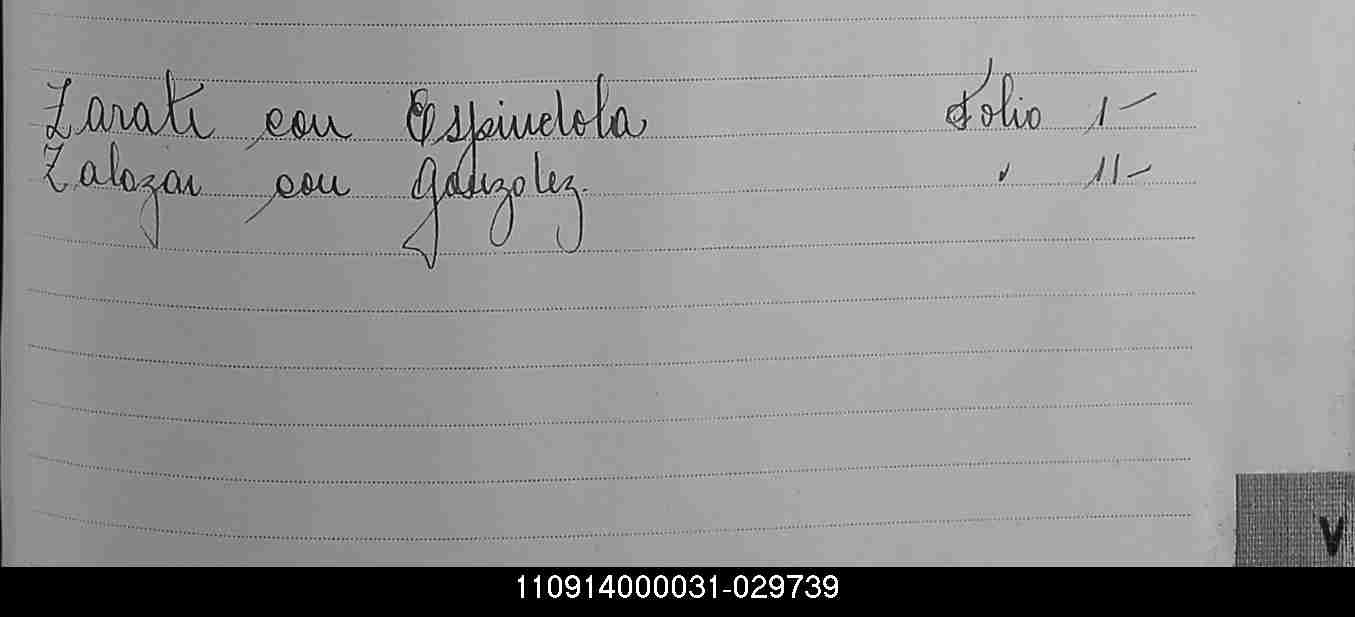 Zarate con Espindola Folio 1-
Zalazar con Gonzalez. " 11-
V
110914000031-029739